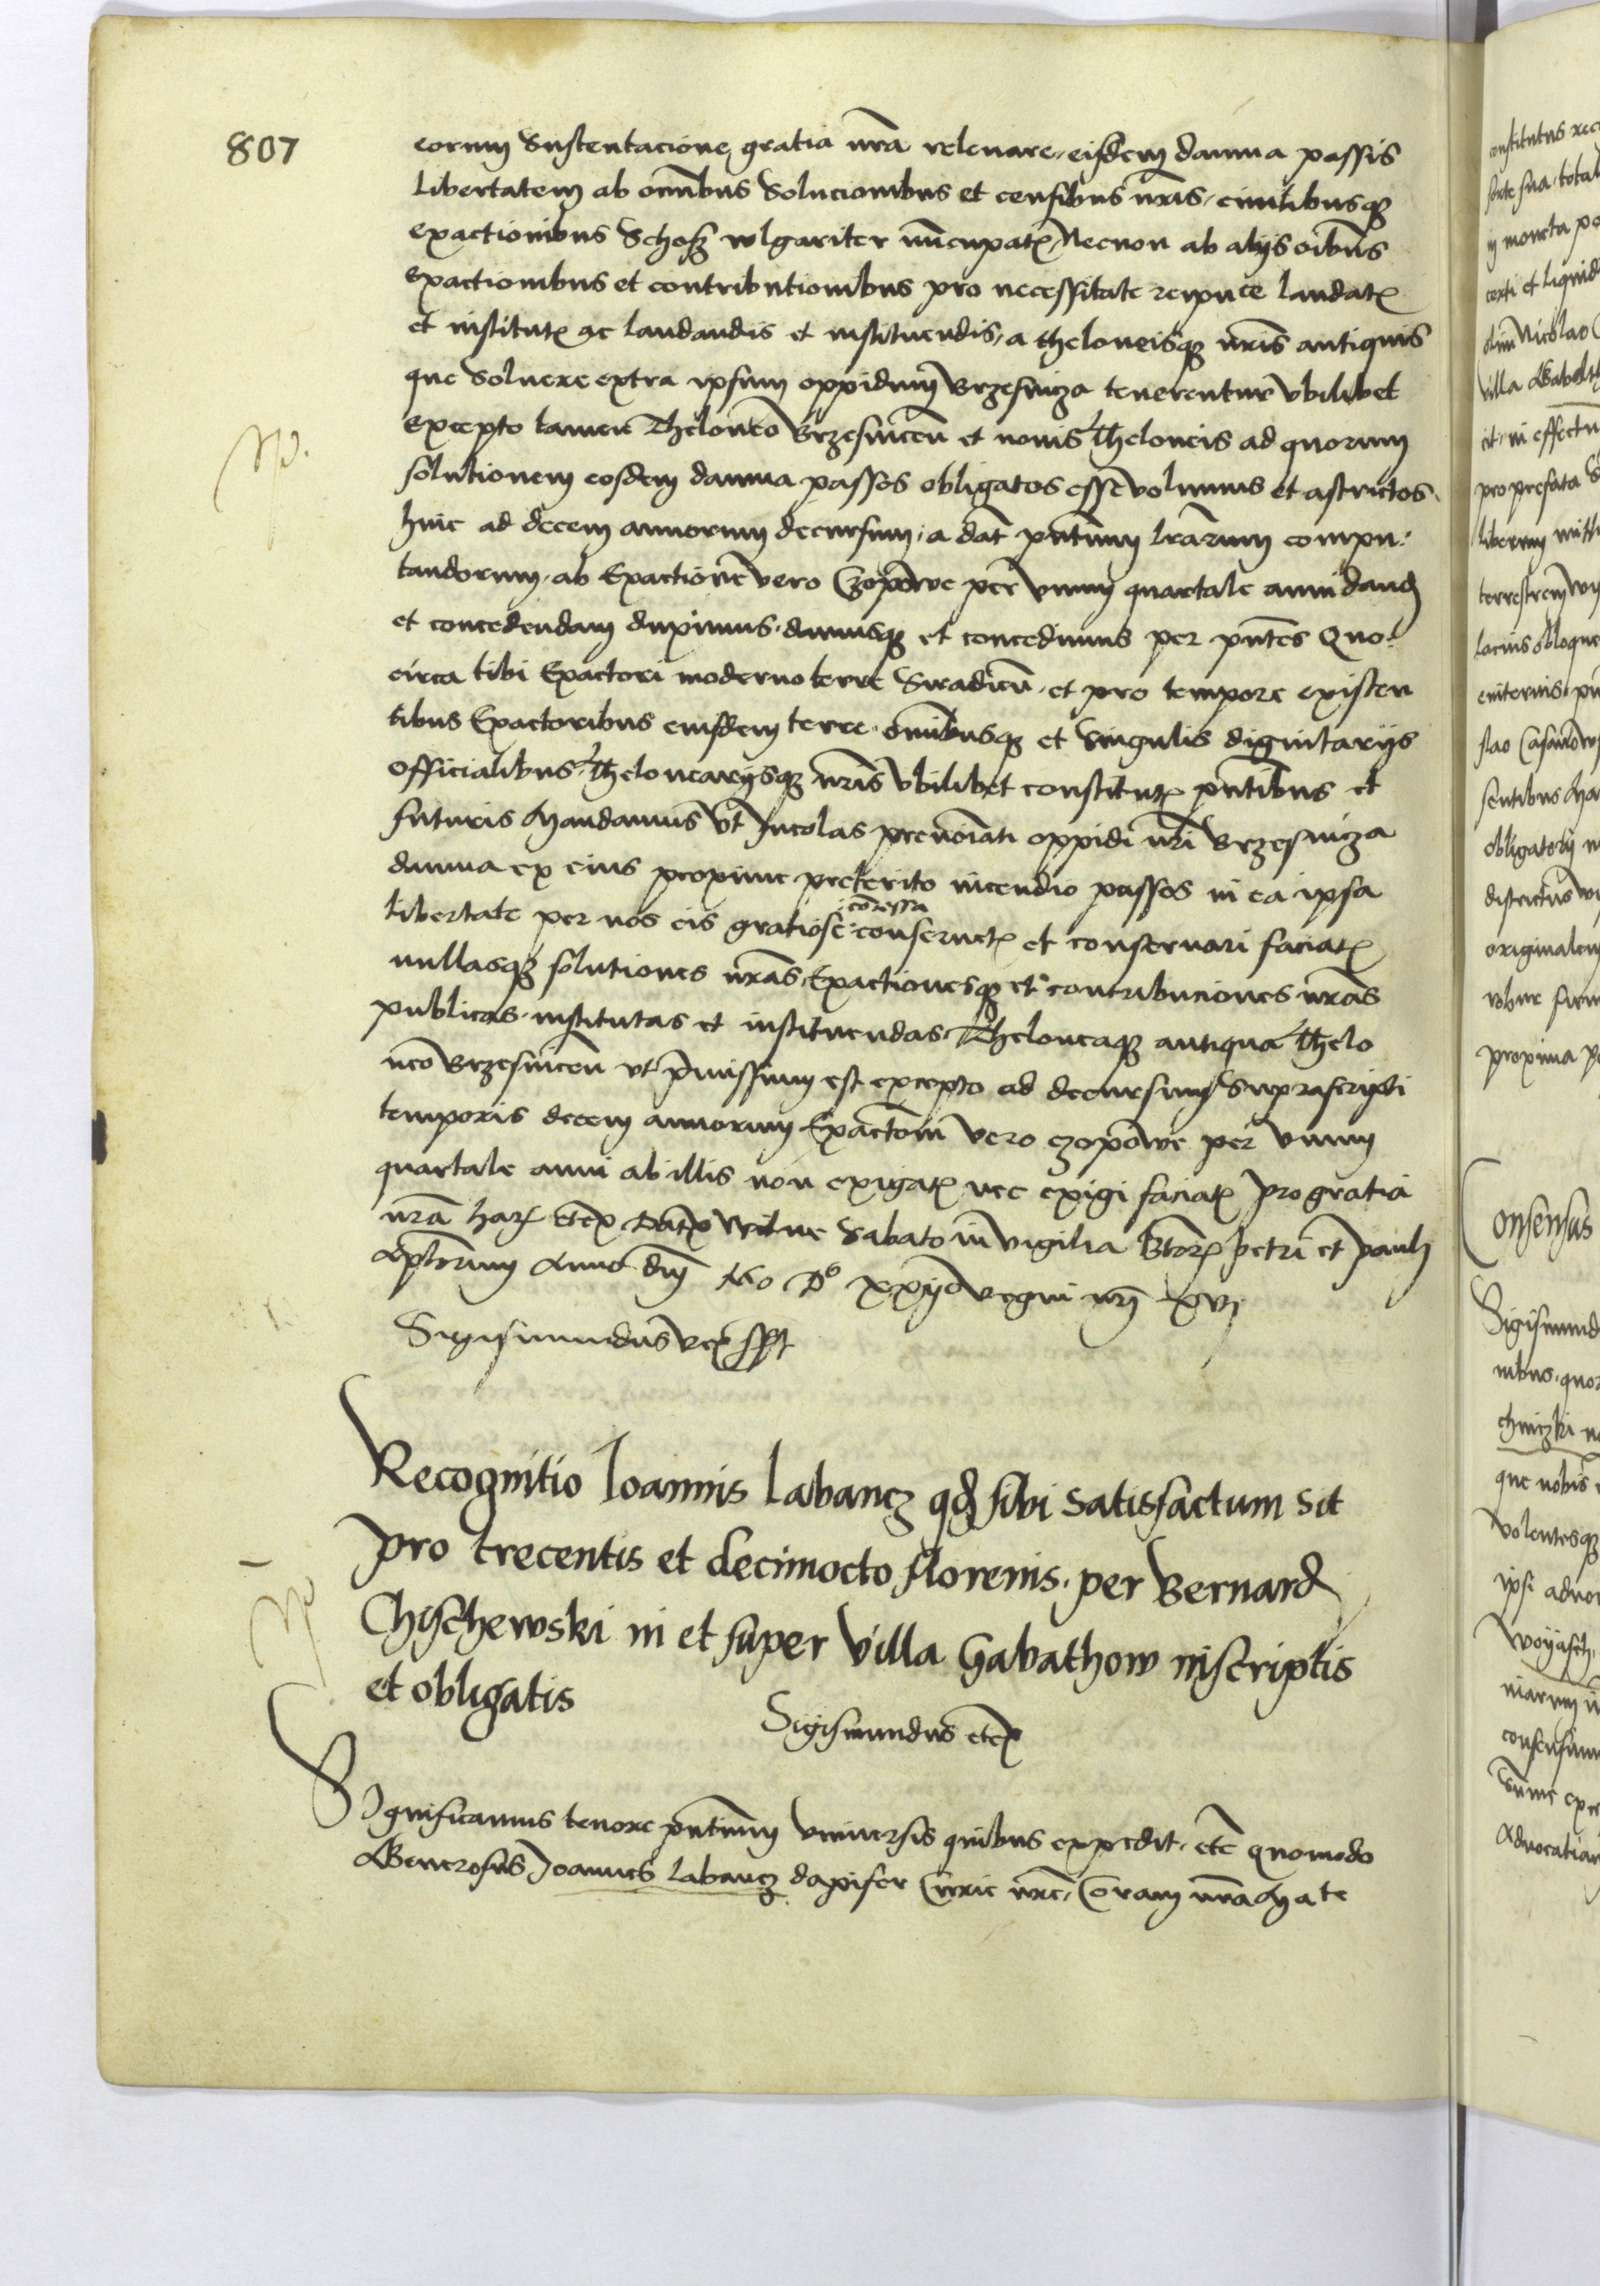 807
eorum Sustentacione gratia nrā releuare, eisdem damna passis
Libertatem ab omībus Solucionibus et censibus nrīs, ciuilibusqȝ
exactionibus Schosß wlgariter nūcupatꝭ, Necnon ab alijs oībus
exactionibus et contributionibus pro necessitate reipuce laudatꝭ
et institutꝭ ac laudandis et instituendis, a theloneisqȝ nrīs antiquis
que Soluere extra ipsum oppidum Brzesnicza tenerentur vbilibet
excepto tamen Theloneo Brzesnicen et nouis Theloneis ad quorum
solutionem eosdem damna passos obligatos esse volumus et astrictos
hinc ad decem annorum decursum, a dat pntium lrārum compu:
tandorum, ab Exactione vero Czopowe per vnum quartale anni dand
et concedendam duximus, damusqȝ et concedimus per pntes Quo:
circa tibi Exactori moderno terre Siradien, et pro tempore existen
tibus Exactoribus eiusdem terre, omībusqȝ et Singulis dignitarijs
officialibus, Thelonearijsqȝ nrīs vbilibet constitutꝭ pntibus et
futuris Mandamus vt Incolas prenoīati oppidi nrī Brzesnicza
damna ex eius proxime preterito incendio passos in ea ipsa
libertate per nos eis gratiose concessa conseruetꝭ et conseruari faciatꝭ
nullasqȝ solutiones nrās, Exactionesqȝ et contribuciones nrās
publicas, institutas et instituendas, Theloneaqȝ antiqua Thelo
neo Brzesnicen vt pmissum est excepto ad decursum Suprascripti
temporis decem annorum Exactōem vero czopowe per vnum
quartale anni ab illis non exigatꝭ nec exigi faciatꝭ pro gratia
nrā harꝭ etcꝭ Datꝭ Wilne Sabato in vigilia Btorꝭ petri et pauli
Aplorum Anno dnj Mo Do xxijo regni nrj xvi
Sigismundus rex sspt
Recognitio Ioannis Labancz qd sibi satisfactum sit
pro trecentis et decimocto florenis per Bernard
Chischewski in et super villa Gabathow inscriptis
et obligatis
Sigismundus etcꝭ
Significamus tenore pntium vniuersis quibus expedit, etc quomodo
Generosus Ioannes Labancz dapifer Curie nre, Coram nra Mate